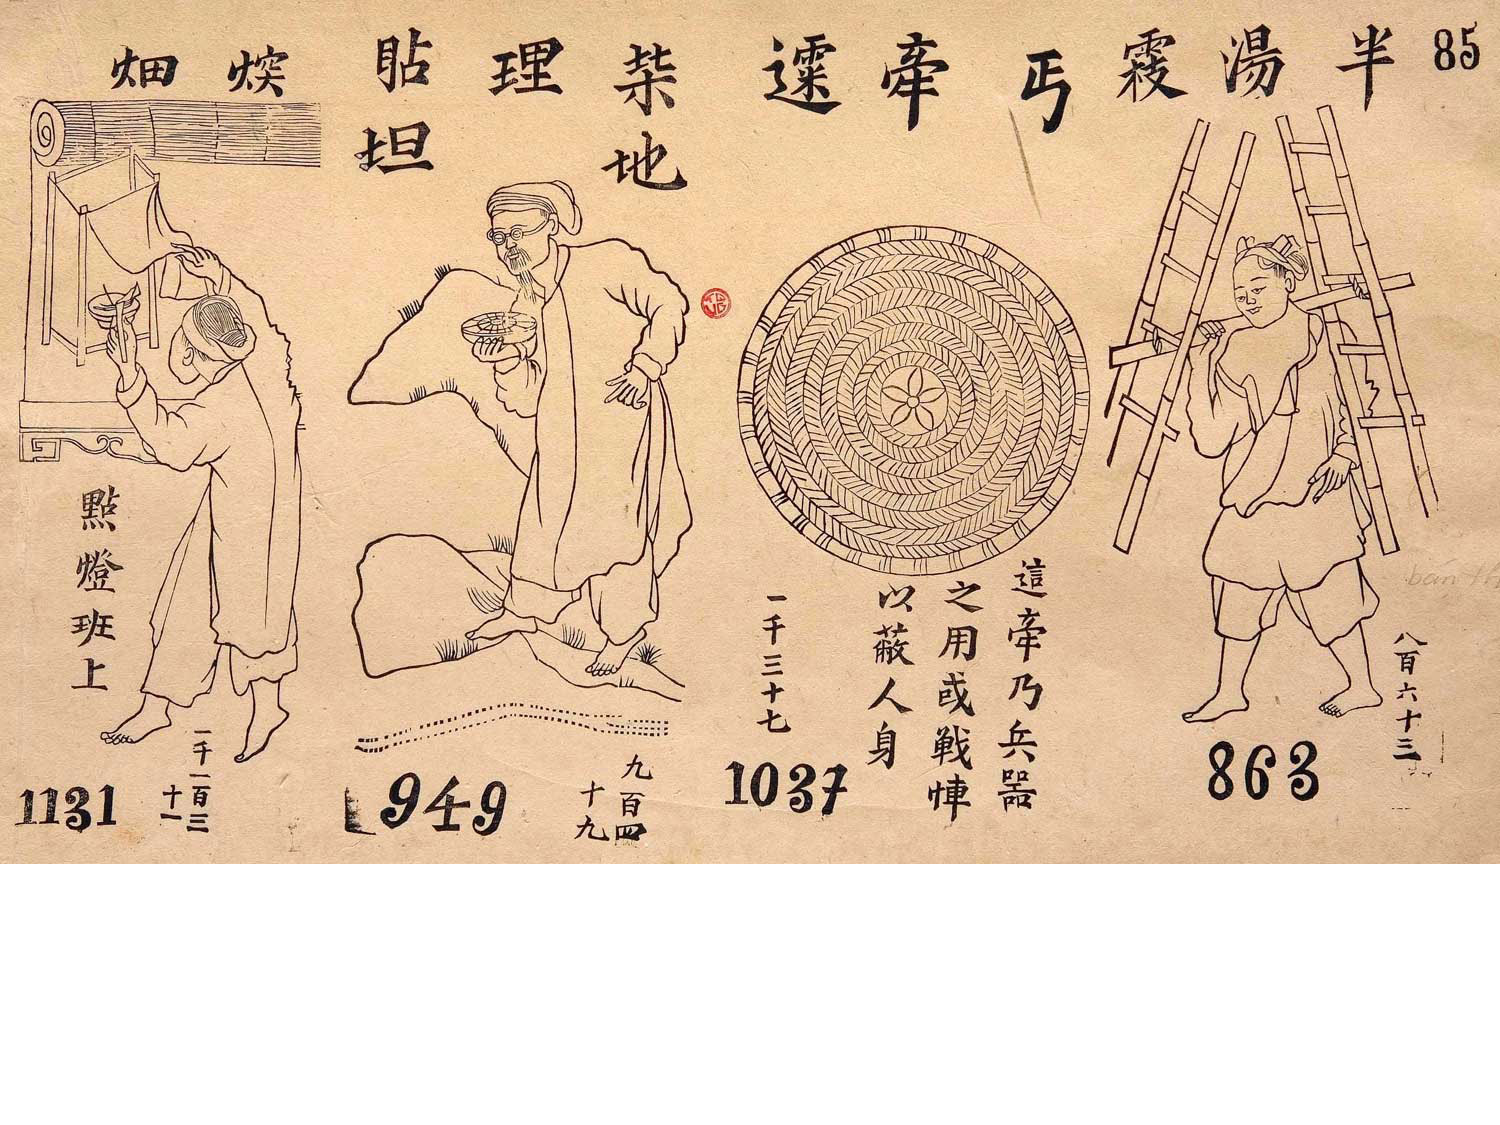 85
半湯
丐牽
柴地理貼坦
畑
八百六十三
863
這牽乃兵噐
之用或戦
以蔽人身
一千三十七
1037
九百四
十九
949
點燈班上
一千一百三
十一
1131
bán th